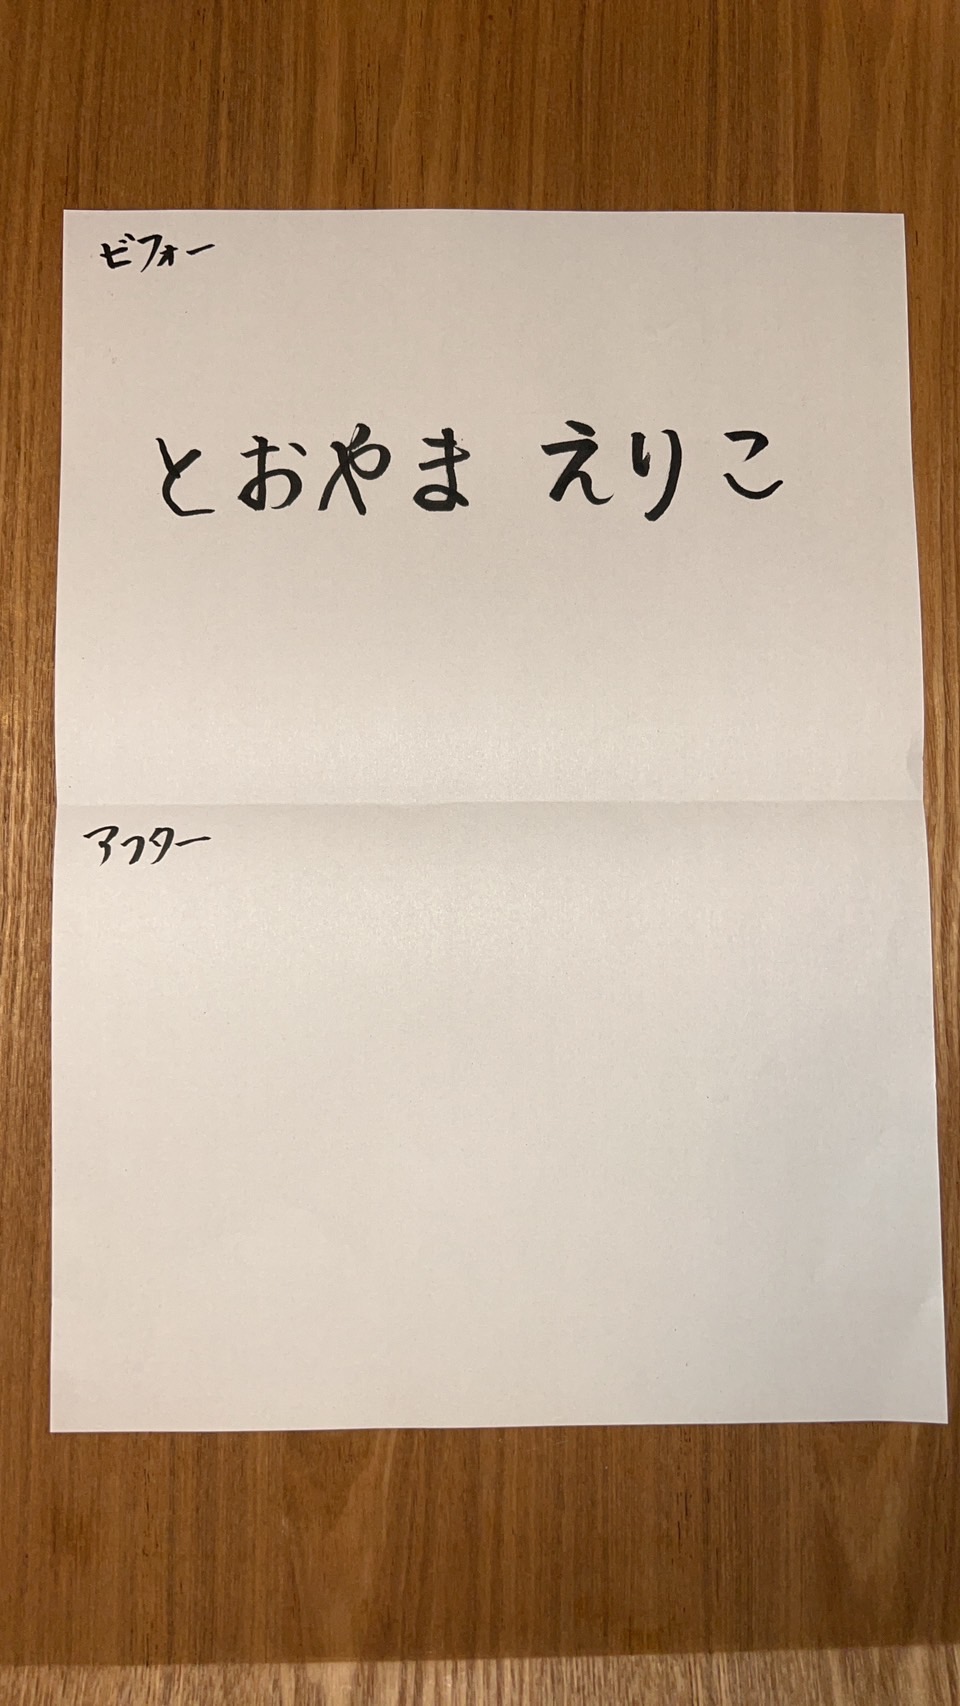 ビフォー
とおやま えりこ
アフター